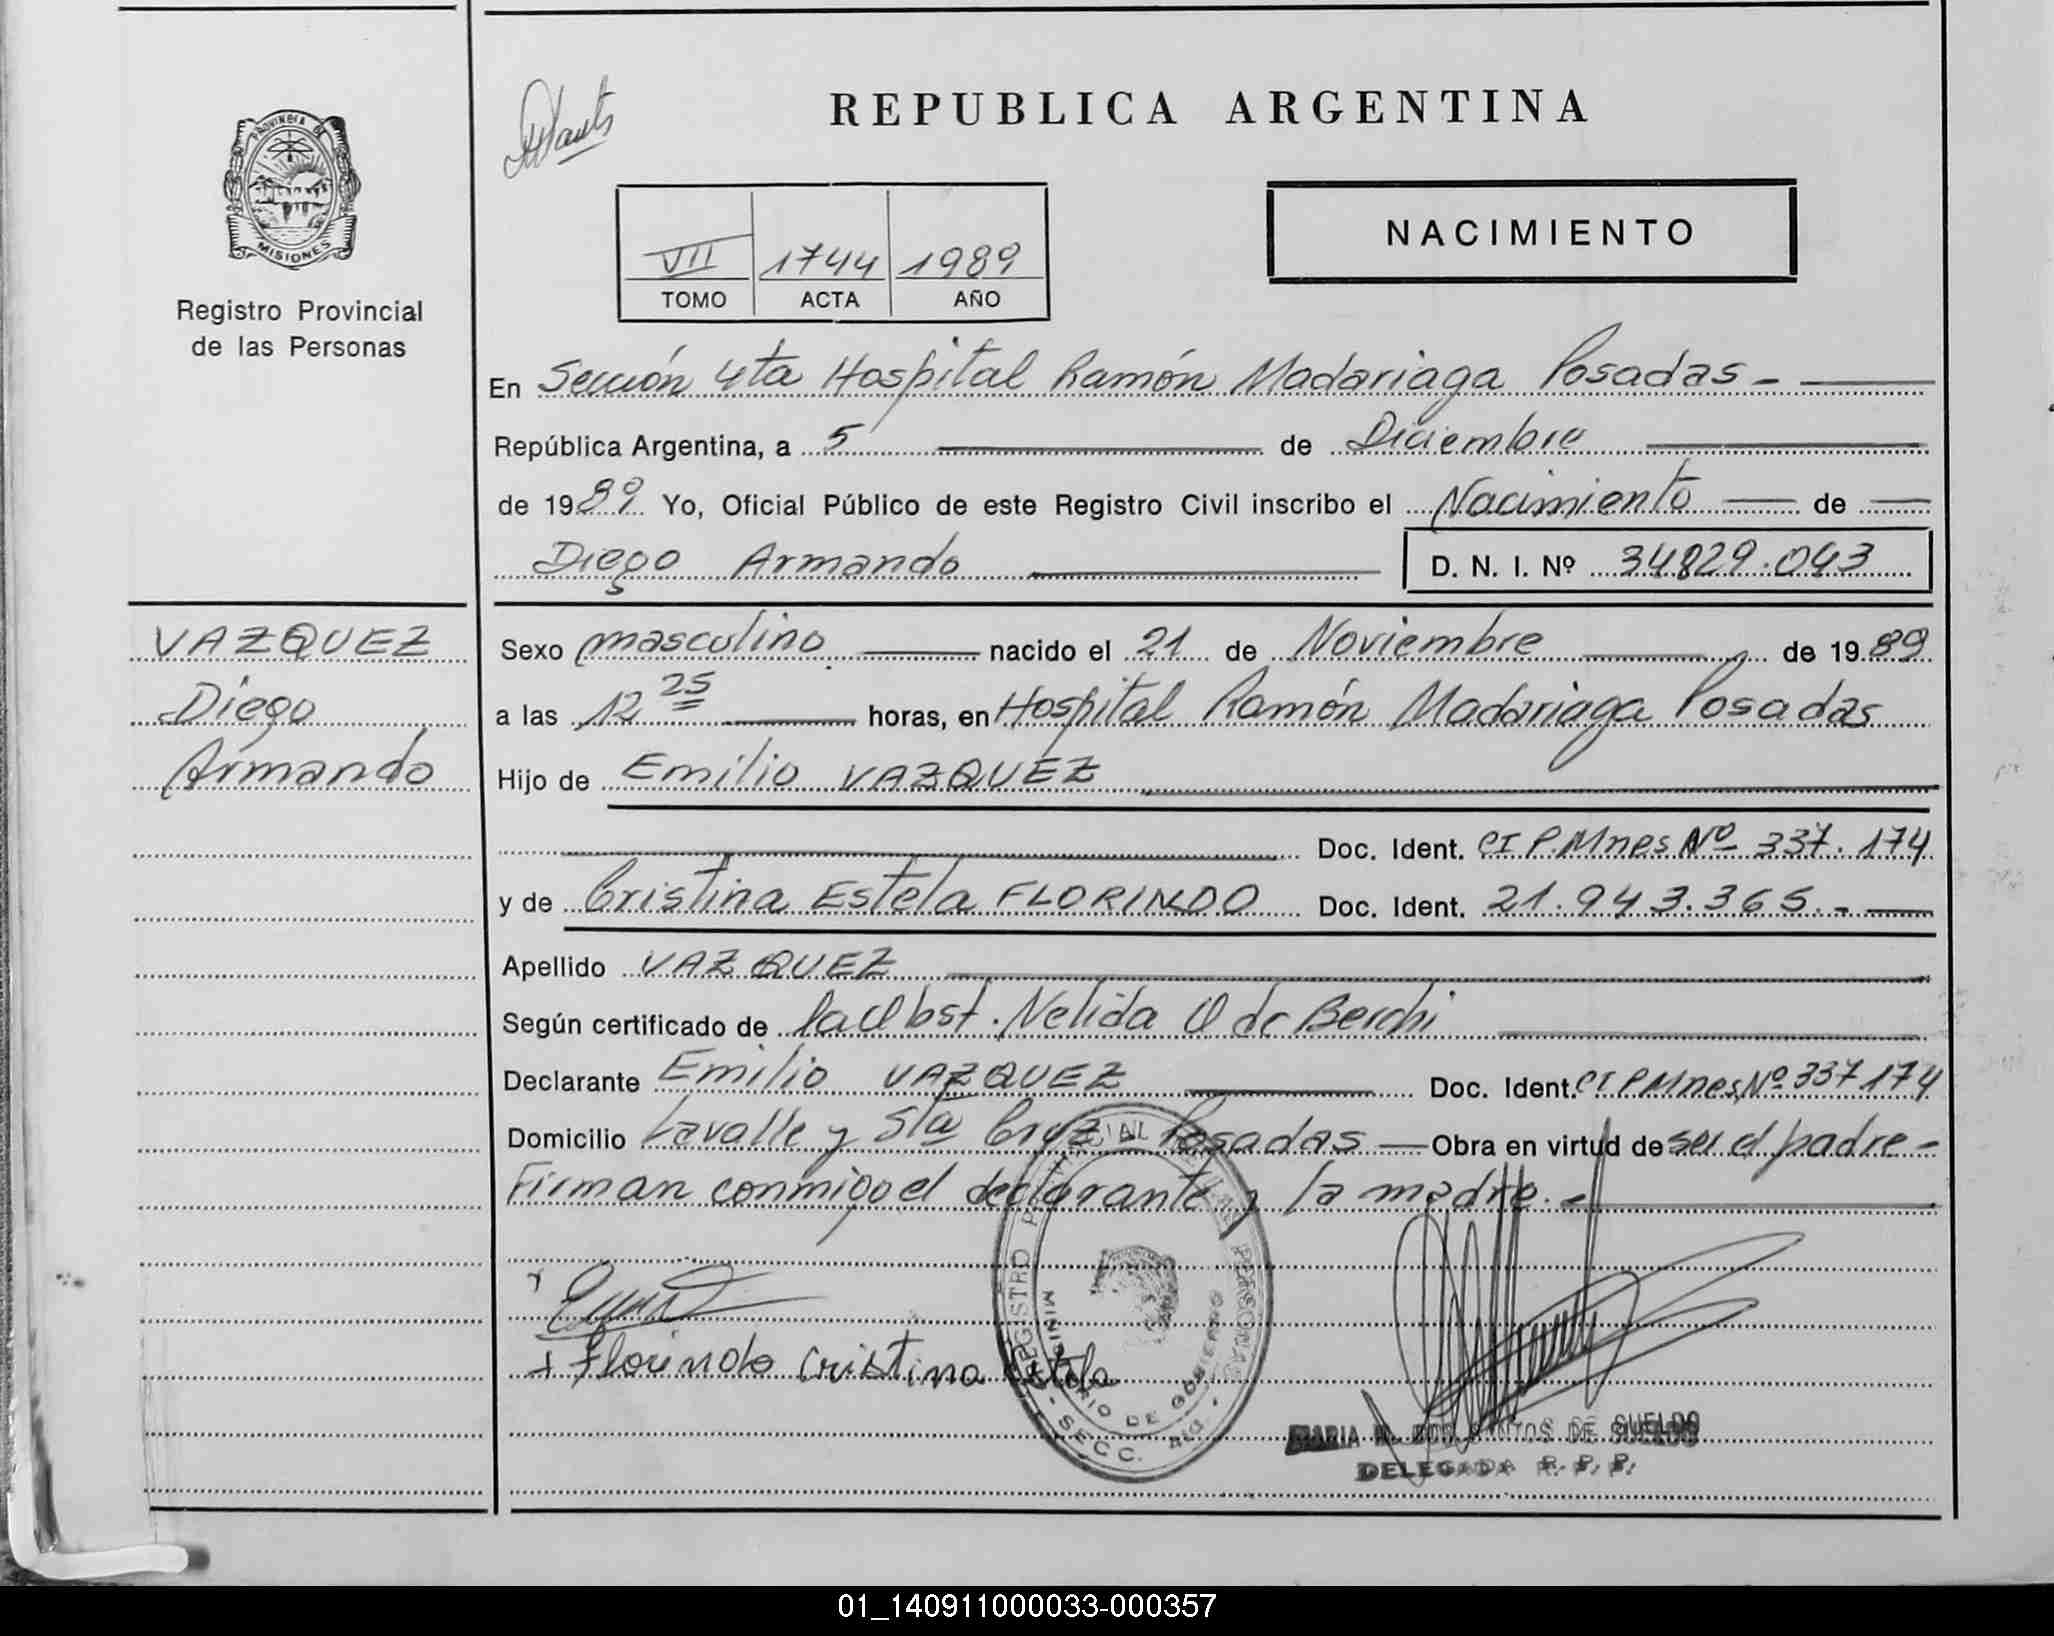 PROVINCIA DE
MISIONES
Registro Provincial
de las Personas
REPUBLICA ARGENTINA
VII 1744 1989
TOMO ACTA AÑO
NACIMIENTO
En Sección 4ta Hospital Ramón Madariaga Posadas -
República Argentina, a 5 de Diciembre
de 1989 Yo, Oficial Público de este Registro Civil inscribo el Nacimiento de
Diego Armando D. N. I. Nº 34829.043
VAZQUEZ
Diego
Armando
Sexo masculino nacido el 21 de Noviembre de 1989
a las 12 25 horas, en Hospital Ramón Madariaga Posadas
Hijo de Emilio VAZQUEZ
Doc. Ident. CI P.Mnes Nº 337.174
y de Cristina Estela FLORINDO Doc. Ident. 21.943.365.-
Apellido VAZQUEZ
Según certificado de la Obst. Nelida O de Berchi
Declarante Emilio VAZQUEZ Doc. Ident. CI P Mnes Nº 337174
Domicilio Lavalle y Sta Cruz - Posadas — Obra en virtud de ser el padre -
Firman conmigo el declarante y la madre. -
x
+ Florindo Cristina Estela
REGISTRO PROVINCIAL DE LAS PERSONAS
MINISTERIO DE GOBIERNO
- SECC.
MARIA DOS SANTOS DE SUELDO
DELEGADA R. P. P.
01_140911000033-000357